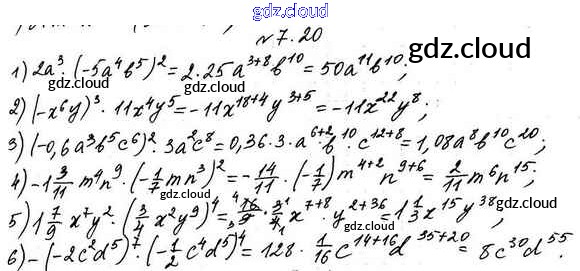 gdz.cloud
№ 7.20
gdz.cloud
1) 2a³·(-5a⁴b⁵)² = 2·25a³⁺⁸b¹⁰ = 50a¹¹b¹⁰;
gdz.cloud
2) (-x⁶y)³·11x⁴y⁵ = -11x¹⁸⁺⁴y³⁺⁵ = -11x²²y⁸;
gdz.cloud
3) (-0,6a³b⁵c⁶)²·3a²c⁸ = 0,36·3·a⁶⁺²b¹⁰·c¹²⁺⁸ = 1,08a⁸b¹⁰c²⁰;
4) -1 3/11 m⁴n⁹·(-1/7 mn³)² = -14/11·(-1/7)m⁴⁺²n⁹⁺⁶ = 2/11 m⁶n¹⁵;
gdz.cloud
5) 1 7/9 x⁷y²·(3/4 x²y⁹)⁴ = 16/9·3/4 x⁷⁺⁸·y²⁺³⁶ = 1 1/3 x¹⁵y³⁸;
gdz.cloud
6) -(-2c²d⁵)⁷·(-1/2 c⁴d⁵)⁴ = 128·1/16 c¹⁴⁺¹⁶d³⁵⁺²⁰ = 8c³⁰d⁵⁵.
gdz.cloud